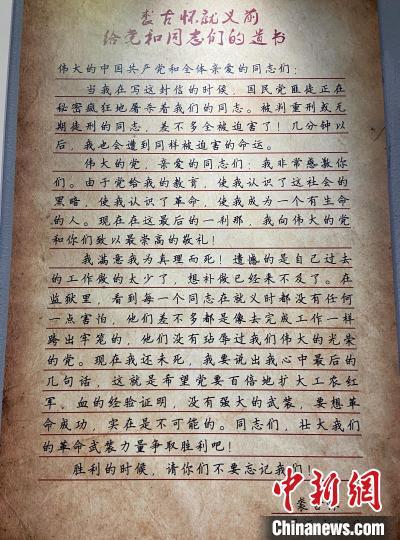 裘古怀就义前
给党和同志们的遗书
伟大的中国共产党和全体亲爱的同志们：
当我在写这封信的时候，国民党匪徒正在
秘密疯狂地屠杀着我们的同志。被判重刑或无
期徒刑的同志，差不多全被迫害了！几分钟以
后，我也会遭到同样被迫害的命运。
伟大的党，亲爱的同志们：我非常感激你
们。由于党给我的教育，使我认识了这社会的
黑暗，使我认识了革命，使我成为一个有生命
的人。现在在这最后的一刹那，我向伟大的党
和你们致以最崇高的敬礼！
我满意我为真理而死！遗憾的是自己过去
的工作做的太少了，想补做已经来不及了。在
监狱里，看到每一个同志在就义时都没有任何
一点害怕，他们差不多都是像去完成工作一样
跨出牢笼的，他们没有玷辱过我们伟大的光荣
的党。现在我还未死，我要说出我心中最后的
几句话，这就是希望党要百倍地扩大工农红
军。血的经验证明，没有强大的武装，要想革
命成功，实在是不可能的。同志们，壮大我们
的革命武装力量争取胜利吧！
胜利的时候，请你们不要忘记我们！
裘
中新网
Chinanews.com